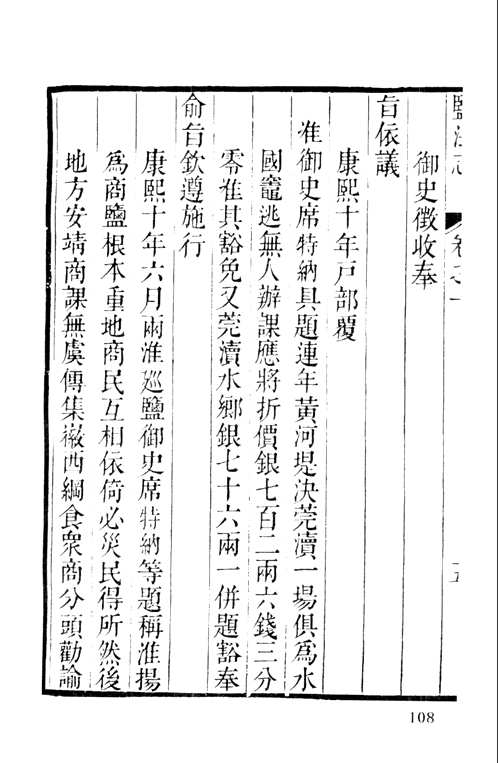 鹽法志
御史徵收奉
旨依議
康熙十年戸部覆
准御史席特納具題連年黃河堤決莞瀆一場俱爲水
國竈逃無人辦課應將折價銀七百二兩六錢三分
零准其豁免又莞瀆水鄉銀七十六兩一併題豁奉
俞旨欽遵施行
康熙十年六月兩淮巡鹽御史席特納等題稱淮揚
爲商鹽根本重地商民互相依倚必災民得所然後
地方安靖商課無虞傳集嶶西綱食衆商分頭勸諭
108